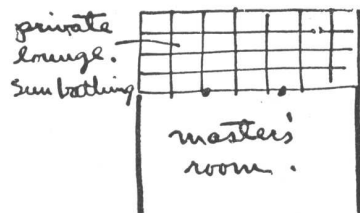 private
lounge.
Sun bathing
master's
room.